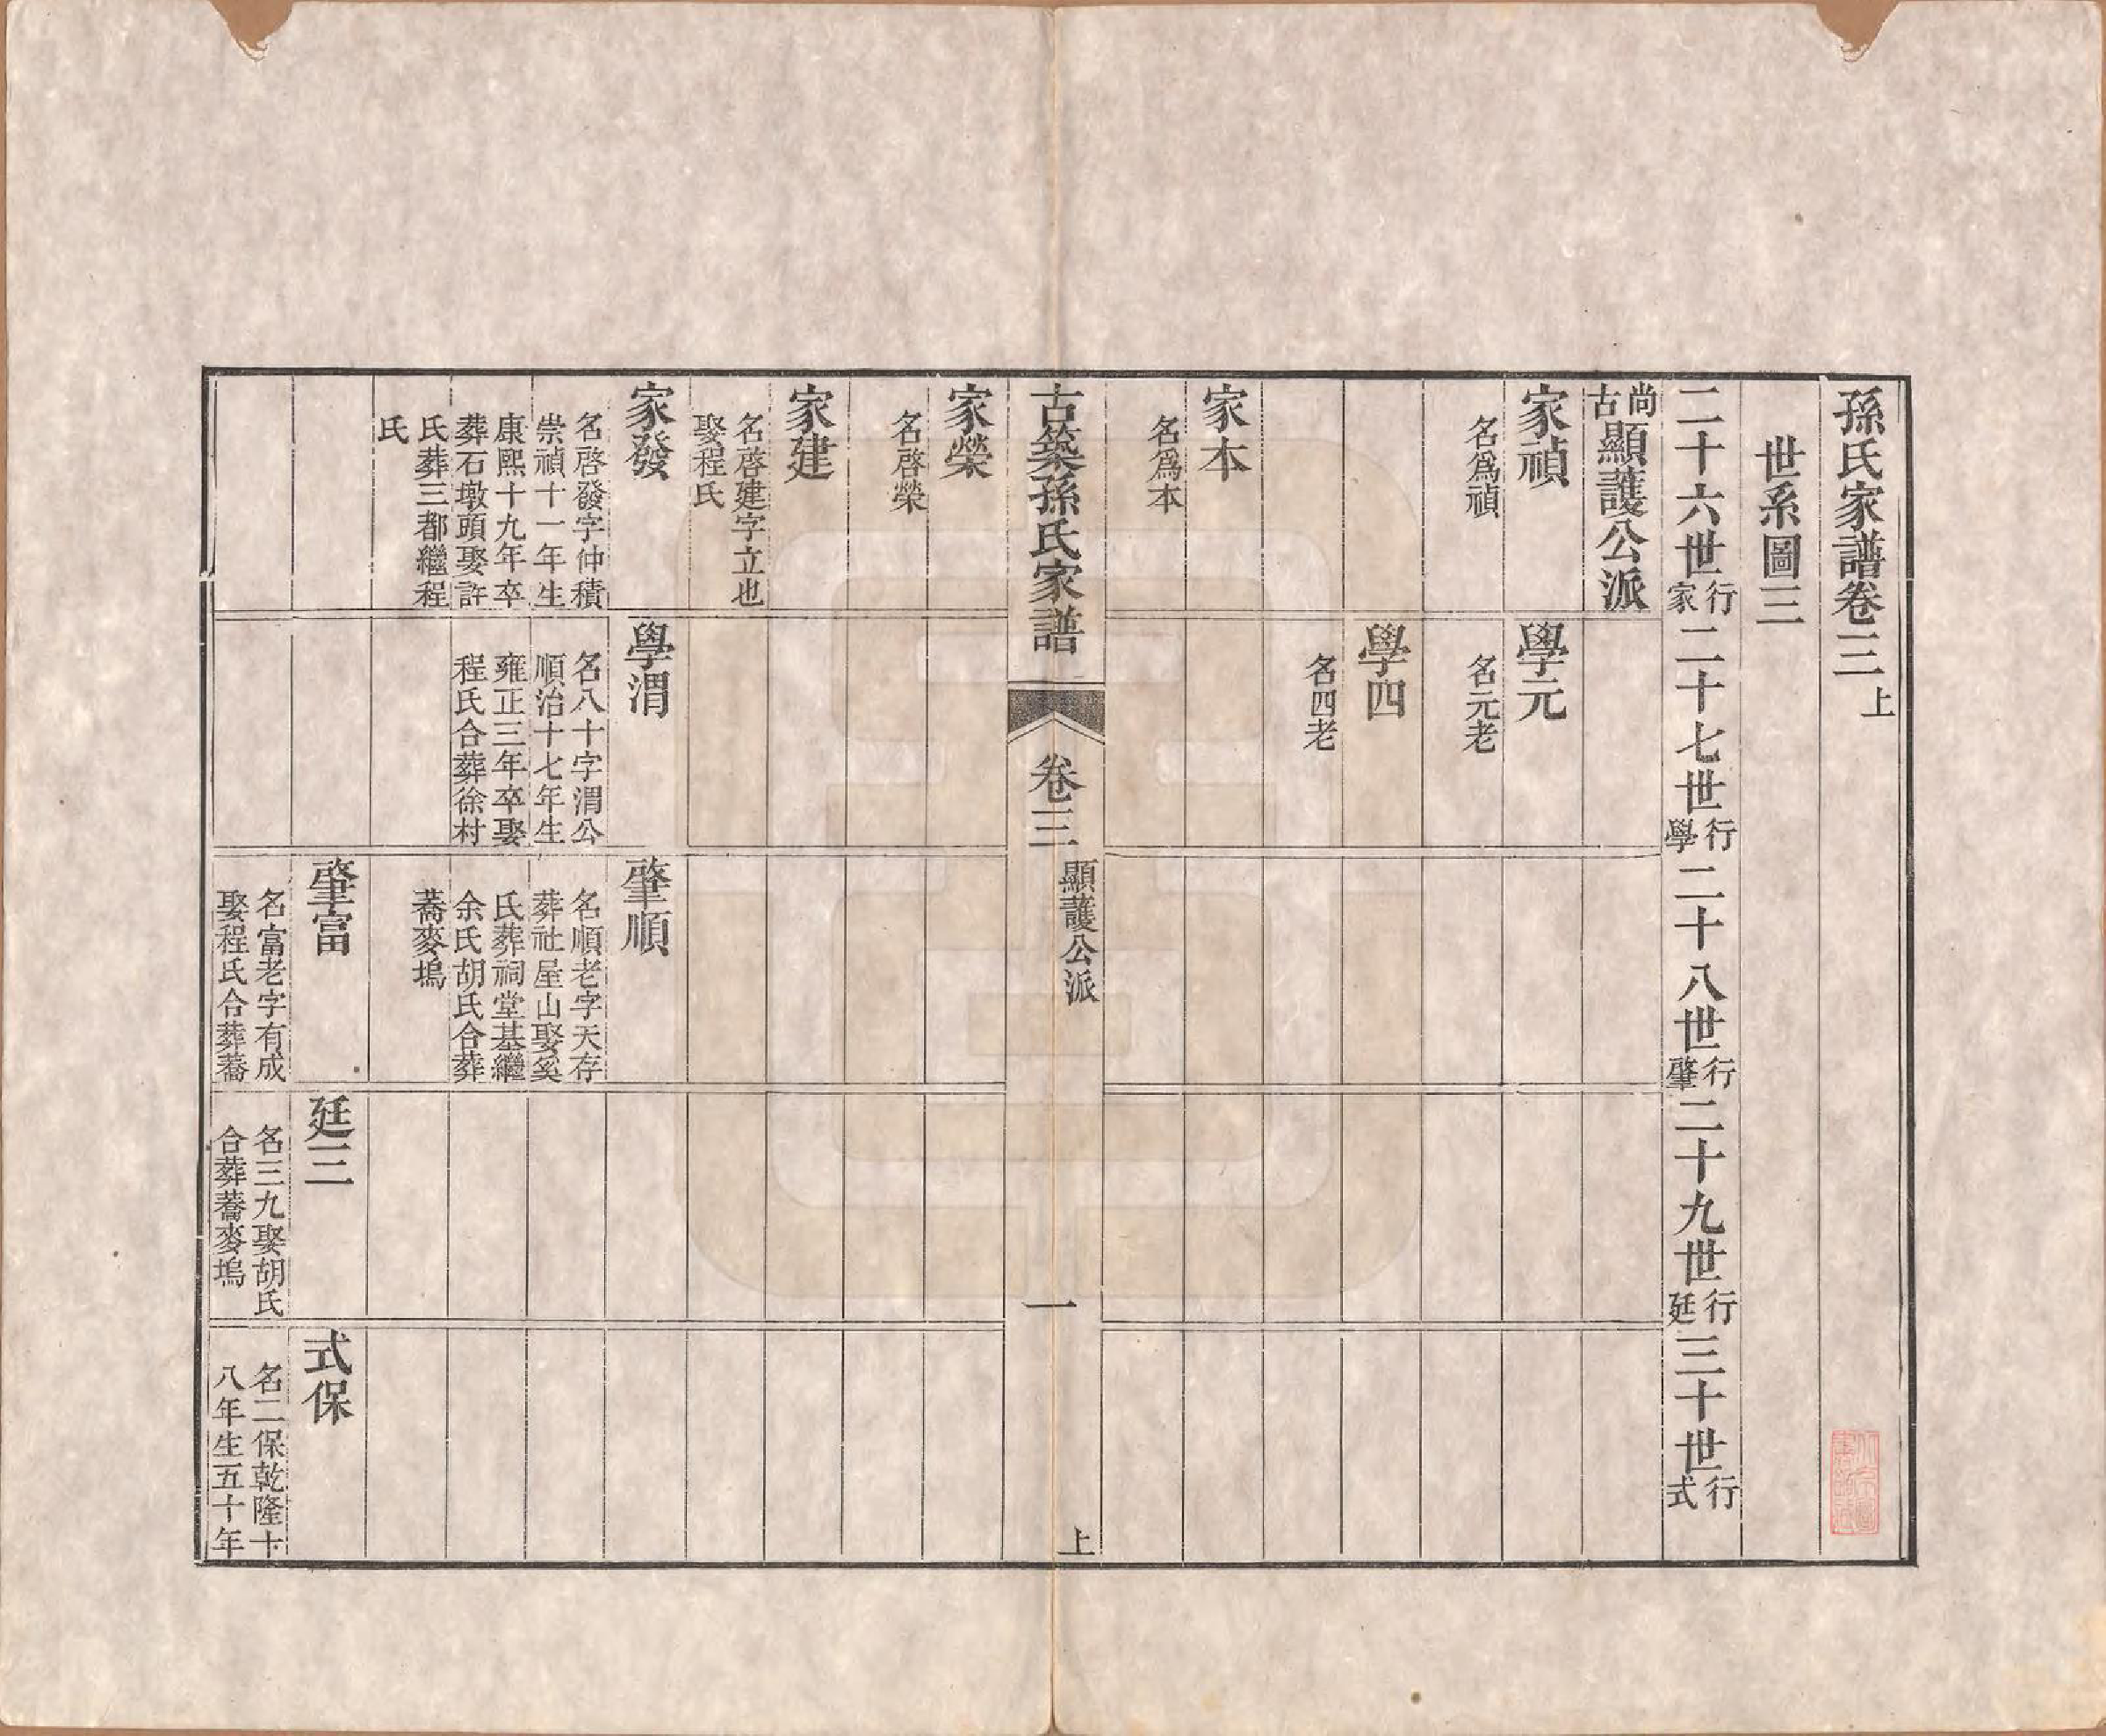 孫氏家譜卷三上
世系圖三
二十六世家行二十七世學行二十八世肇行二十九世廷行三十世式行
尚古顯護公派
家禎
學元
名爲禎
名元老
學四
名四老
家本
名爲本
古築孫氏家譜
卷三
顯護公派
一
上
家榮
名啓榮
家建
名啓建字立也
娶程氏
家發
學渭
肇順
名啓發字仲積
崇禎十一年生
康熙十九年卒
葬石墩頭娶許
氏葬三都繼程
氏
名八十字渭公
順治十七年生
雍正三年卒娶
程氏合葬徐村
名順老字天存
葬社屋山娶奚
氏葬祠堂基繼
余氏胡氏合葬
蕎麥塢
肇富
廷三
式保
名富老字有成
娶程氏合葬蕎
名三九娶胡氏
合葬蕎麥塢
名二保乾隆十
八年生五十年